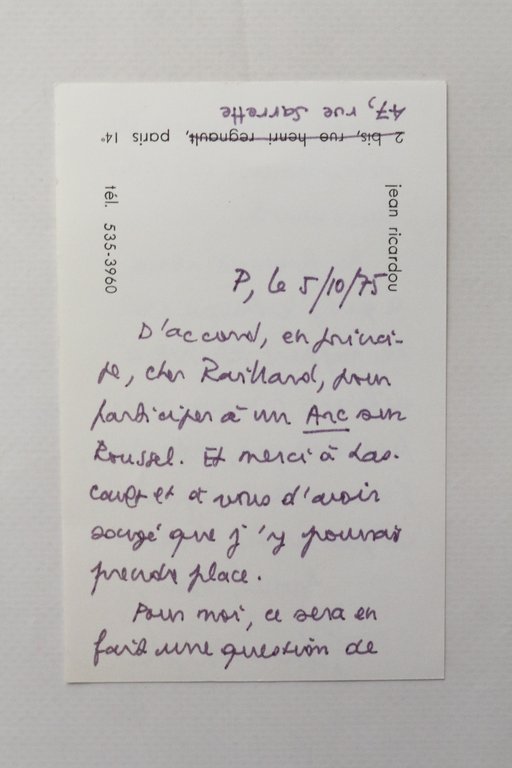 47, rue Sarrette
2 bis, rue henri regnault, paris 14e
jean ricardou
tél. 535-3960
P, le 5/10/75
D'accord, en princi-
pe, cher Raillard, pour
participer à un Arc sur
Roussel. Et merci à Las-
cault et à vous d'avoir
songé que j'y pourrais
prendre place.
Pour moi, ce sera en
fait une question de